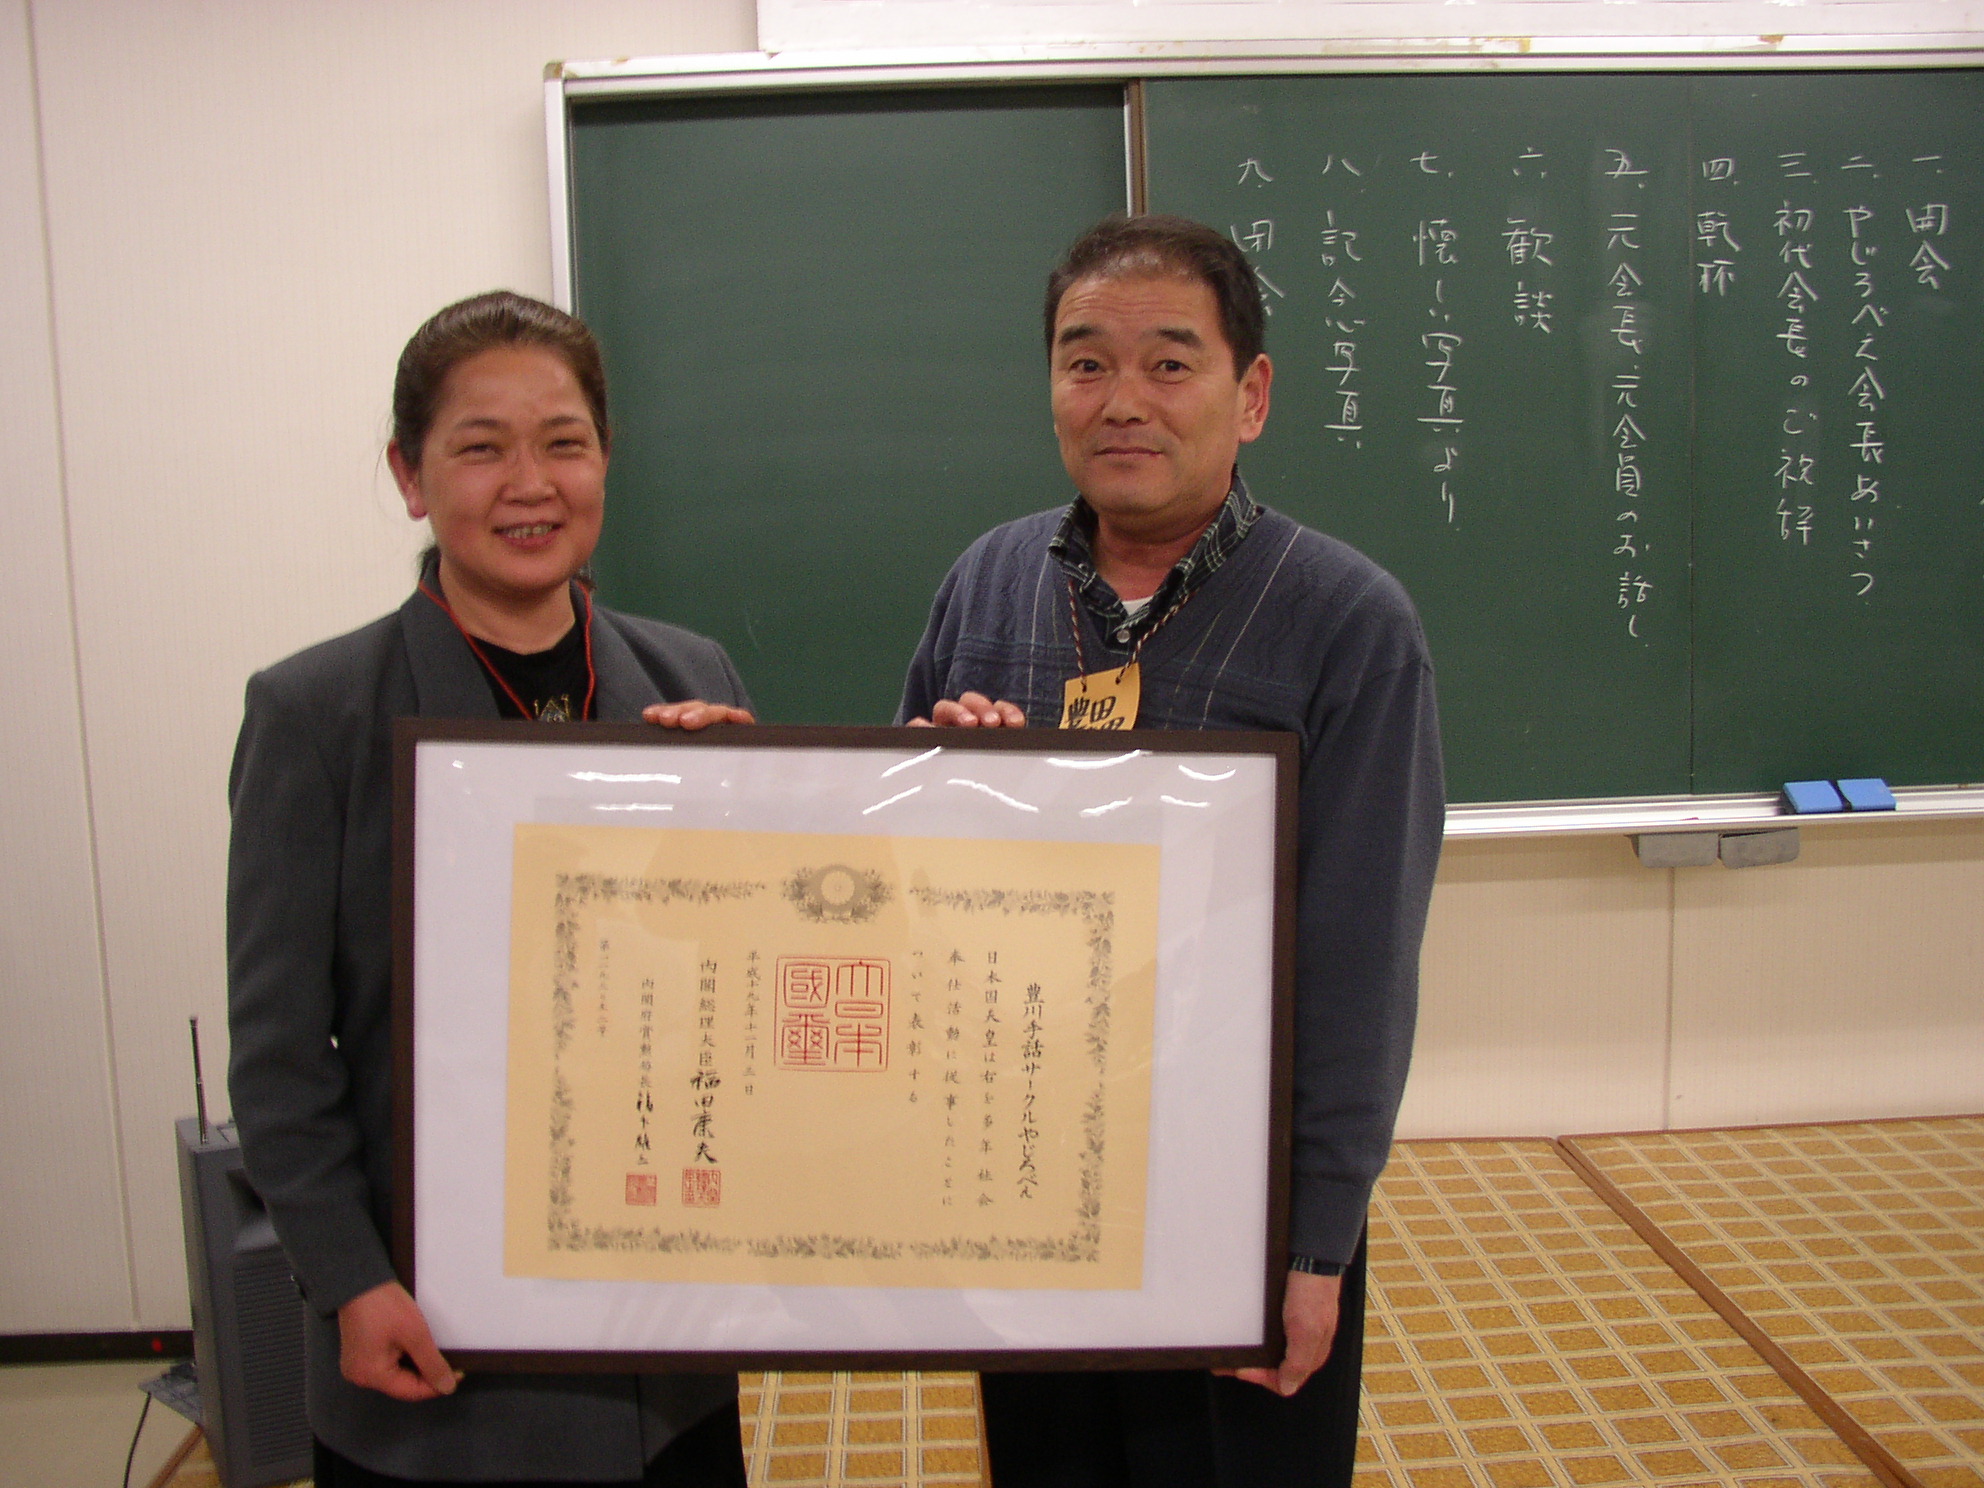 一、開会
二、やじろべえ会長あいさつ
三、初代会長のご祝辞
四、乾杯
五、元会長、元会員のお話し
六、歓談
七、懐しい写真より
八、記念写真
九、閉会
豊田
豊川手話サークルやじろべえ
日本国天皇は右を多年社会
奉仕活動に従事したことに
ついて表彰する
大日本
國璽
平成十九年十一月三日
内閣総理大臣 福田康夫
内閣府賞勲局長